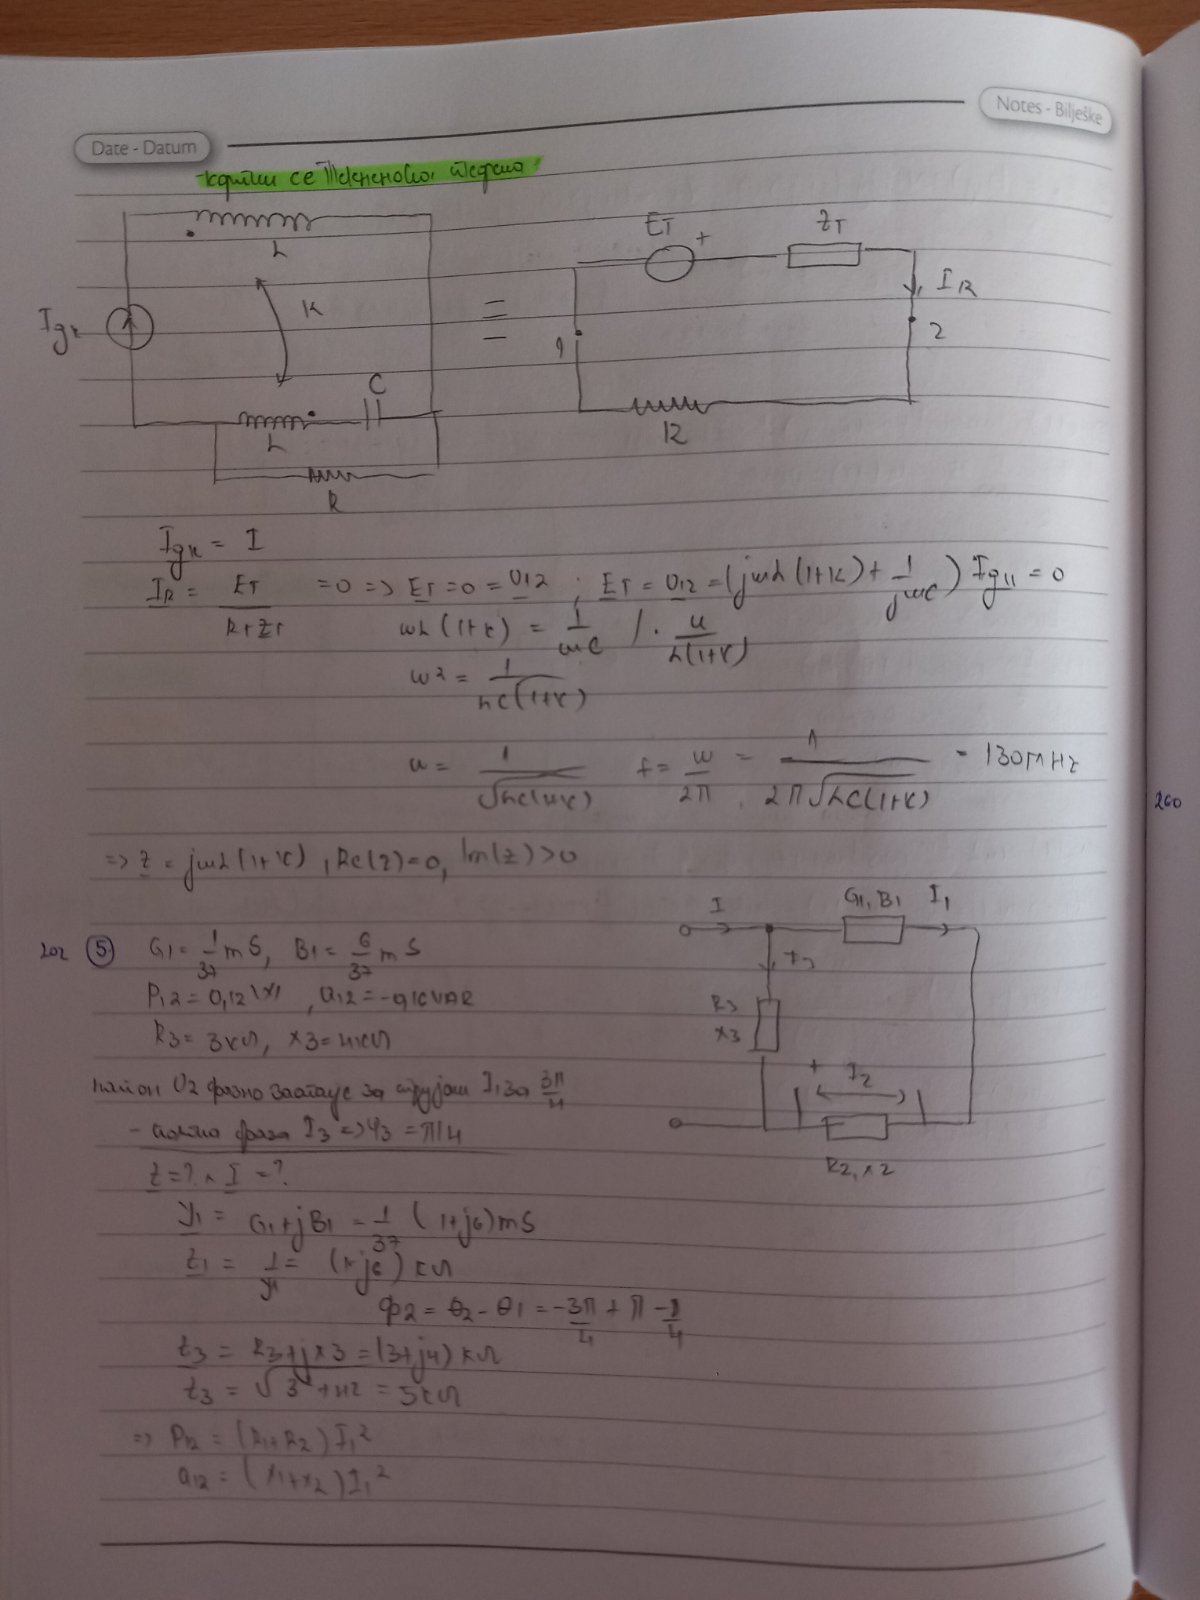 Notes - Bilješke
Date - Datum
користи се Тевененова теорема
L
K
Ig
C
L
R
=
ET
+
ZT
IR
1
2
R
Ig = I
IR = ET / R+ZT = 0 => ET = 0 = U12 ; ET = U12 = (jωL(1+K) + 1/jωC) Ig = 0
ωL(1+K) = 1/ωC / · ω/L(1+K)
ω² = 1/LC(1+K)
ω = 1/√LC(1+K) f = ω/2π = 1/2π√LC(1+K) = 130 MHz
260
=> Z = jωL(1+K), Re(Z)=0, Im(Z)>0
202 (5) G1 = 1/37 mS, B1 = 6/37 mS
I
G1, B1
I1
I3
R3
X3
+
I2
R2, X2
R3 = 3kΩ, X3 = 4kΩ
напон U2 фазно заостаје за струјом I1 за 3π/4
фаза I3 => ψ3 = π/4
Z = ? I = ?
Y1 = G1+jB1 = 1/37 (1+j6) mS
Z1 = 1/Y1 = (1-j6) kΩ
Φ2 = θ2 - θ1 = -3π/4 + π - π/4
Z3 = R3+jX3 = (3+j4) kΩ
Z3 = √3²+42 = 5kΩ
=> P12 = (R1+R2) I1²
Q12 = (X1+X2) I1²